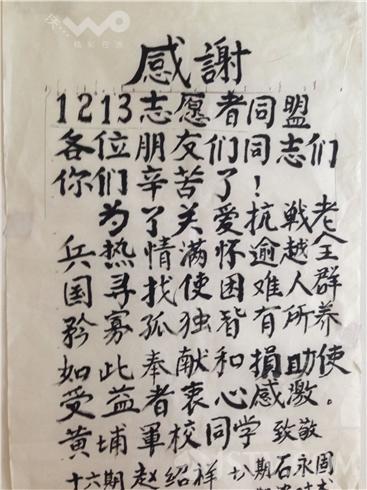 精彩在沃
感謝
1213志愿者同盟
各位朋友们同志们
你们辛苦了！
为了关爱抗戦老
兵热情满怀逾越全
国寻找使困难人群
矜寡孤独皆有所养
如此奉献和捐助使
受益者衷心感激。
黄埔軍校同学 致敬
十六期赵绍祥 期石永固